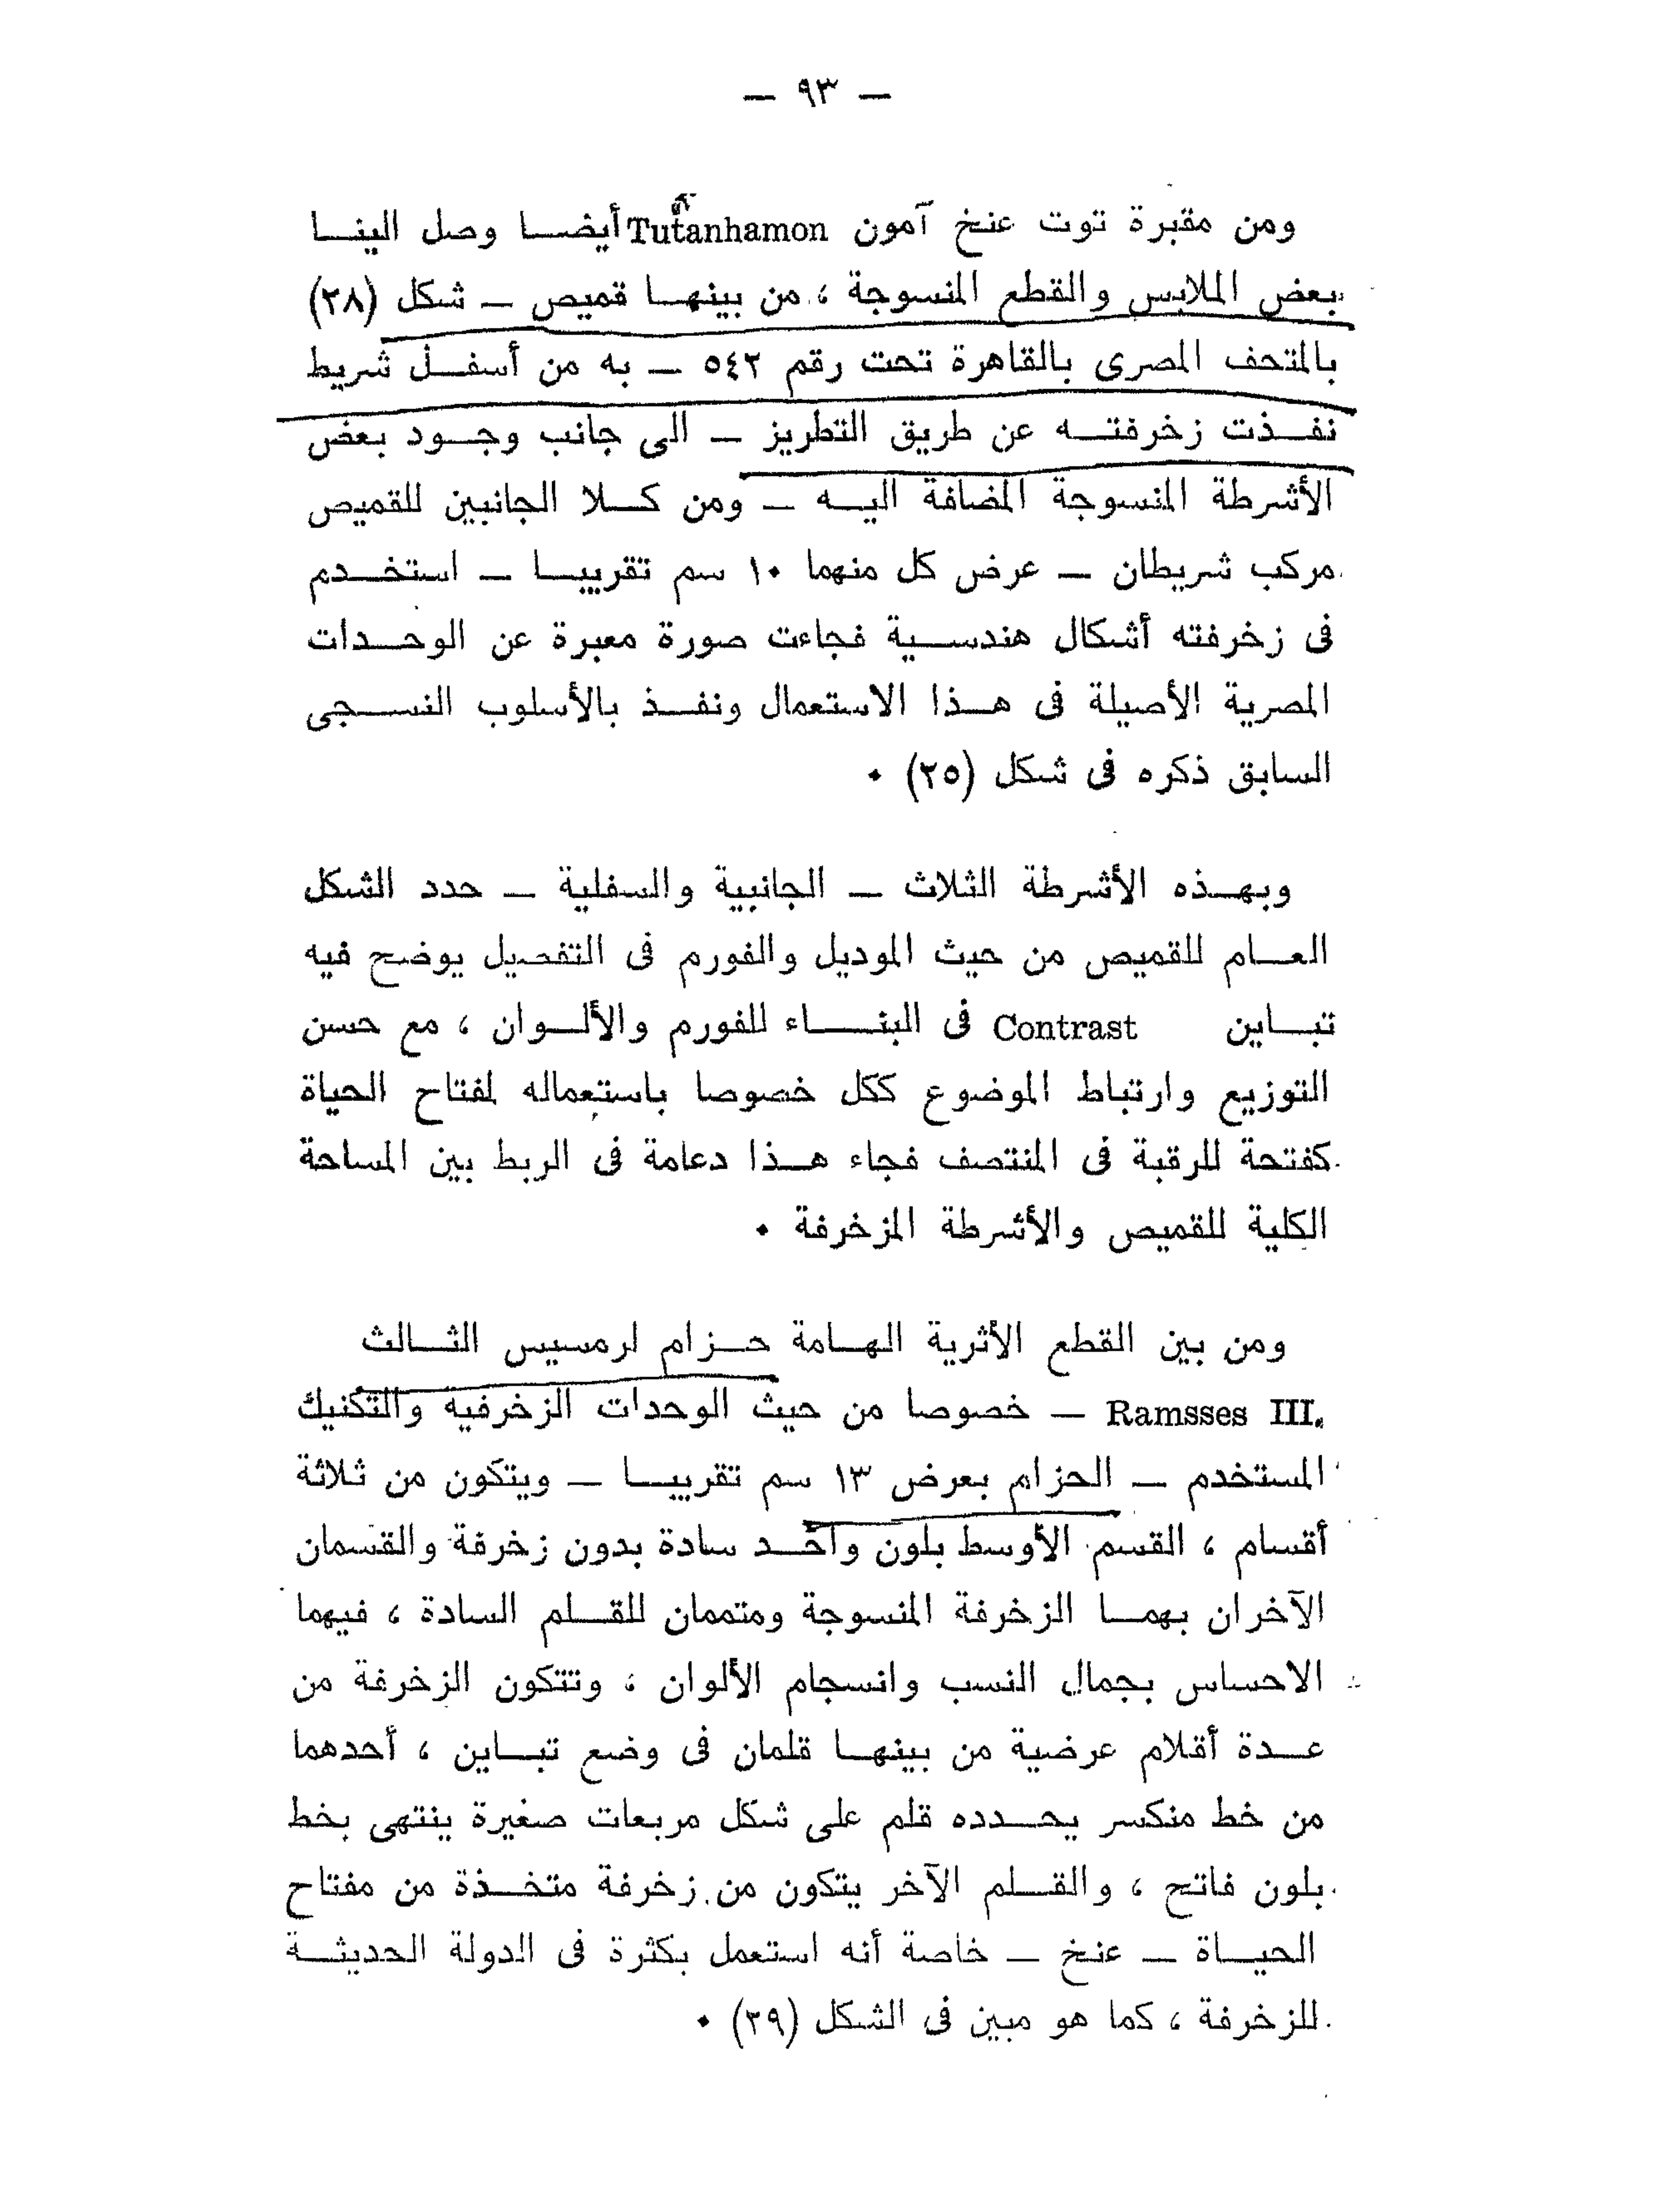 — ٩٣ —
ومن مقبرة توت عنخ آمون Tutanhamon أيضا وصل الينا
بعض الملابس والقطع المنسوجة ، من بينها قميص — شكل (٢٨)
بالمتحف المصرى بالقاهرة تحت رقم ٥٤٢ — به من أسفل شريط
نفذت زخرفته عن طريق التطريز — الى جانب وجود بعض
الأشرطة المنسوجة المضافة اليه — ومن كلا الجانبين للقميص
مركب شريطان — عرض كل منهما ١٠ سم تقريبا — استخدم
فى زخرفته أشكال هندسية فجاءت صورة معبرة عن الوحدات
المصرية الأصيلة فى هذا الاستعمال ونفذ بالأسلوب النسجى
السابق ذكره فى شكل (٢٥) ٠
وبهذه الأشرطة الثلاث — الجانبية والسفلية — حدد الشكل
العام للقميص من حيث الموديل والفورم فى التفصيل يوضح فيه
تباين Contrast فى البناء للفورم والألوان ، مع حسن
التوزيع وارتباط الموضوع ككل خصوصا باستعماله لمفتاح الحياة
كفتحة للرقبة فى المنتصف فجاء هذا دعامة فى الربط بين المساحة
الكلية للقميص والأشرطة المزخرفة ٠
ومن بين القطع الأثرية الهامة حزام لرمسيس الثالث
Ramsses III. — خصوصا من حيث الوحدات الزخرفية والتكنيك
المستخدم — الحزام بعرض ١٣ سم تقريبا — ويتكون من ثلاثة
أقسام ، القسم الأوسط بلون واحد سادة بدون زخرفة والقسمان
الآخران بهما الزخرفة المنسوجة ومتممان للقلم السادة ، فيهما
الاحساس بجمال النسب وانسجام الألوان ، وتتكون الزخرفة من
عدة أقلام عرضية من بينها قلمان فى وضع تباين ، أحدهما
من خط منكسر يحدده قلم على شكل مربعات صغيرة ينتهى بخط
بلون فاتح ، والقلم الآخر يتكون من زخرفة متخذة من مفتاح
الحياة — عنخ — خاصة أنه استعمل بكثرة فى الدولة الحديثة
للزخرفة ، كما هو مبين فى الشكل (٢٩) ٠